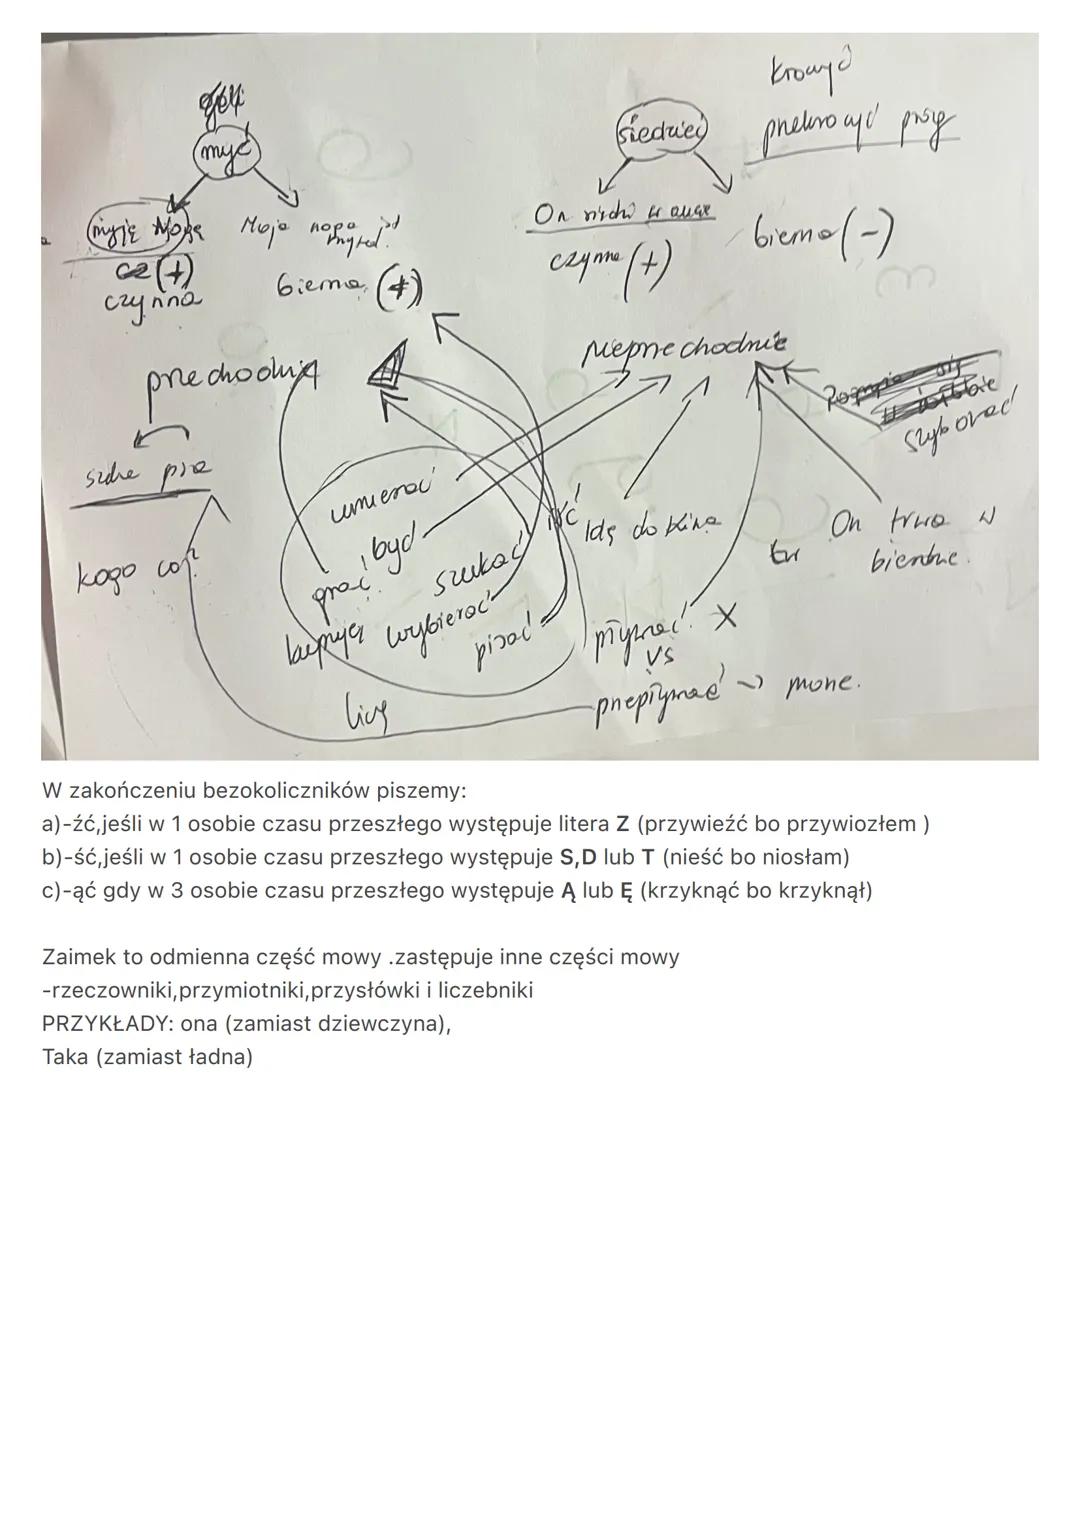 myć
myję nogę
czynna
(+)
Moja noga jest
myta
bierna (+)
siedzieć
On siedzi w
czynna (+)
bierna (-)
kroczyć
przekroczyć próg
przechodnie
kogo co?
nieprzechodnie
umierać
być
grać
szukać
kupuję
wybierać
pisać
liczę
iść
Idę do kina
On trwa w
tr
szybować
pływać X
vs
przepływać → morze.
W zakończeniu bezokoliczników piszemy:
a)-źć,jeśli w 1 osobie czasu przeszłego występuje litera Z (przywieźć bo przywiozłem )
b)-ść,jeśli w 1 osobie czasu przeszłego występuje S,D lub T (nieść bo niosłam)
c)-ąć gdy w 3 osobie czasu przeszłego występuje Ą lub Ę (krzyknąć bo krzyknął)
Zaimek to odmienna część mowy .zastępuje inne części mowy
-rzeczowniki,przymiotniki,przysłówki i liczebniki
PRZYKŁADY: ona (zamiast dziewczyna),
Taka (zamiast ładna)